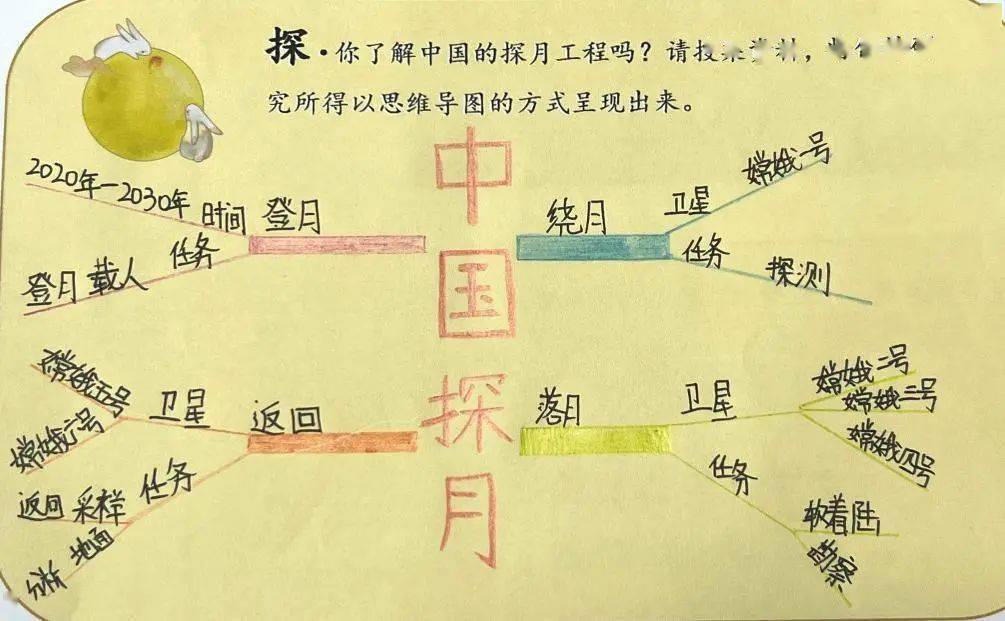 探·你了解中国的探月工程吗？请
究所得以思维导图的方式呈现出来。
中国探月
绕月
卫星
嫦娥一号
任务
探测
落月
卫星
嫦娥二号
嫦娥三号
嫦娥四号
任务
软着陆
勘察
登月
时间
2020年-2030年
任务
登月 载人
返回
卫星
嫦娥五号
嫦娥六号
任务
返回 采样
地面